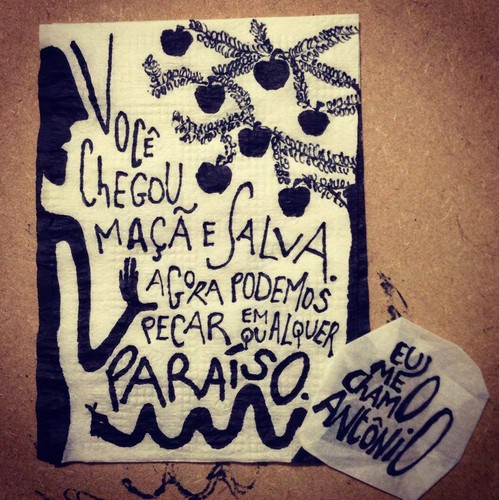 VOCÊ
ChEGOU
MAÇÃ E SALVA.
AGORA PODEMOS
PECAR EM QUALQUER
PARAÍSO.
EU
ME
ChAMO
ANTÔNIO